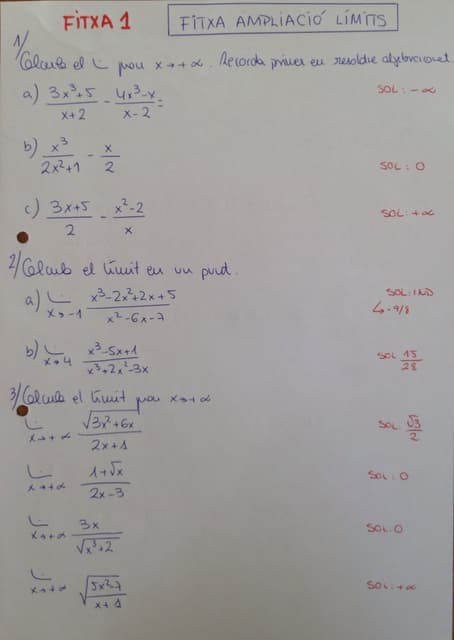 FITXA 1 FITXA AMPLIACIÓ LÍMITS
1/ Calcula el L per x→+∞. Recorda primer en resoldre algebraicament
a) (3x³+5)/(x+2) - (4x³-x)/(x-2) = SOL: -∞
b) x³/(2x²+1) - x/2 SOL: 0
c) (3x+5)/2 - (x²-2)/x SOL: +∞
2/ Calcula el límit en un punt.
a) L x→-1 (x³-2x²+2x+5)/(x²-6x-7) SOL: IND
↳ -9/8
b) L x→4 (x³-5x+1)/(x³+2x²-3x) SOL 15/28
3/ Calcula el límit per x→+∞
L x→+∞ √(3x²+6x)/(2x+1) SOL: √3/2
L x→+∞ (1+√x)/(2x-3) SOL: 0
L x→+∞ 3x/√(x³+2) SOL: 0
L x→+∞ √((5x²-7)/(x+1)) SOL: +∞